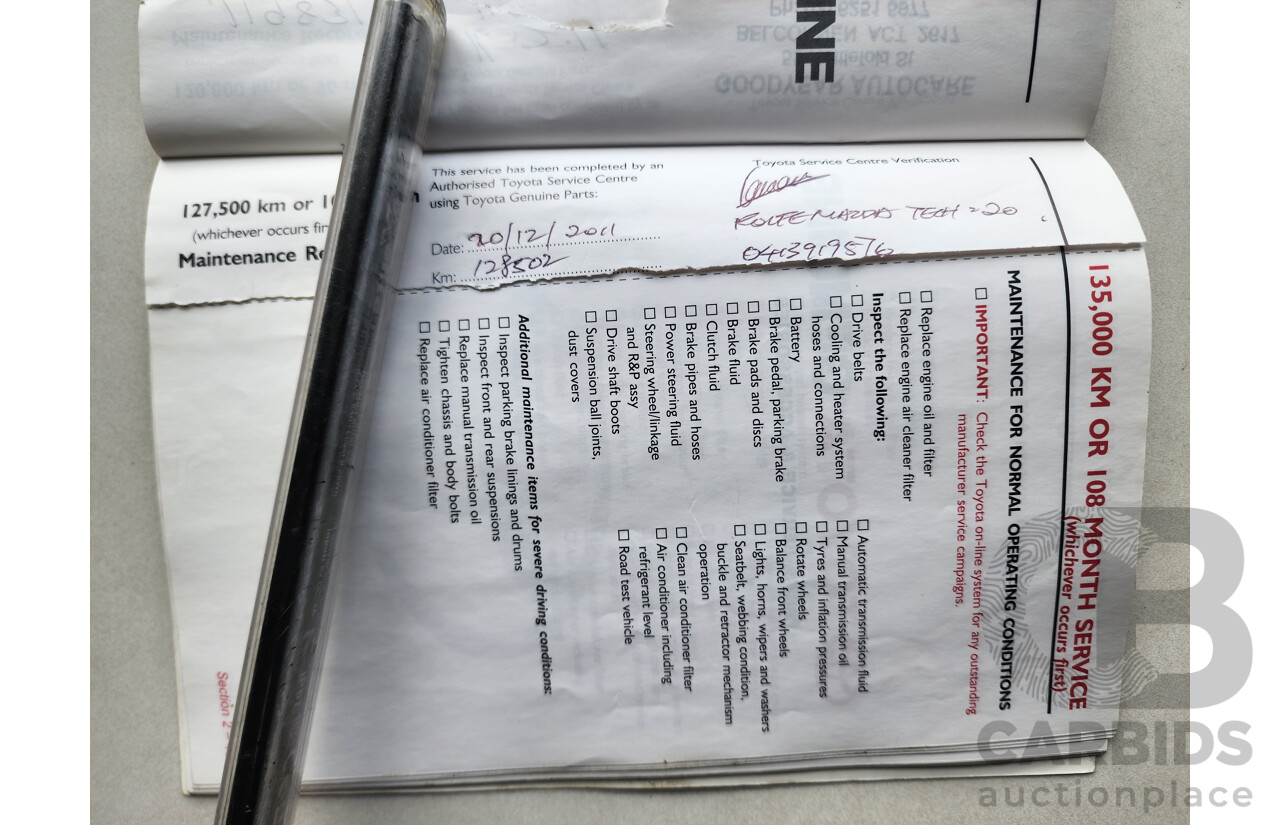 INE
GOODYEAR AUTOCARE
BELCONNEN ACT 2617
127,500 km or 10
(whichever occurs fir
Maintenance Re
This service has been completed by an
Authorised Toyota Service Centre
using Toyota Genuine Parts:
Date: 20/12/2011
Km: 128502
Toyota Service Centre Verification
ROLFE MAZDA TECH = 20
0413919576
135,000 KM OR 108 MONTH SERVICE
(whichever occurs first)
MAINTENANCE FOR NORMAL OPERATING CONDITIONS
☐ IMPORTANT: Check the Toyota on-line system for any outstanding
manufacturer service campaigns.
☐ Replace engine oil and filter
☐ Replace engine air cleaner filter
Inspect the following:
☐ Drive belts
☐ Cooling and heater system
hoses and connections
☐ Battery
☐ Brake pedal, parking brake
☐ Brake pads and discs
☐ Brake fluid
☐ Clutch fluid
☐ Brake pipes and hoses
☐ Power steering fluid
☐ Steering wheel/linkage
and R&P assy
☐ Drive shaft boots
☐ Suspension ball joints,
dust covers
☐ Automatic transmission fluid
☐ Manual transmission oil
☐ Tyres and inflation pressures
☐ Rotate wheels
☐ Balance front wheels
☐ Lights, horns, wipers and washers
☐ Seatbelt, webbing condition,
buckle and retractor mechanism
operation
☐ Clean air conditioner filter
☐ Air conditioner including
refrigerant level
☐ Road test vehicle
Additional maintenance items for severe driving conditions:
☐ Inspect parking brake linings and drums
☐ Inspect front and rear suspensions
☐ Replace manual transmission oil
☐ Tighten chassis and body bolts
☐ Replace air conditioner filter
Section 2
CARBIDS
auctionplace